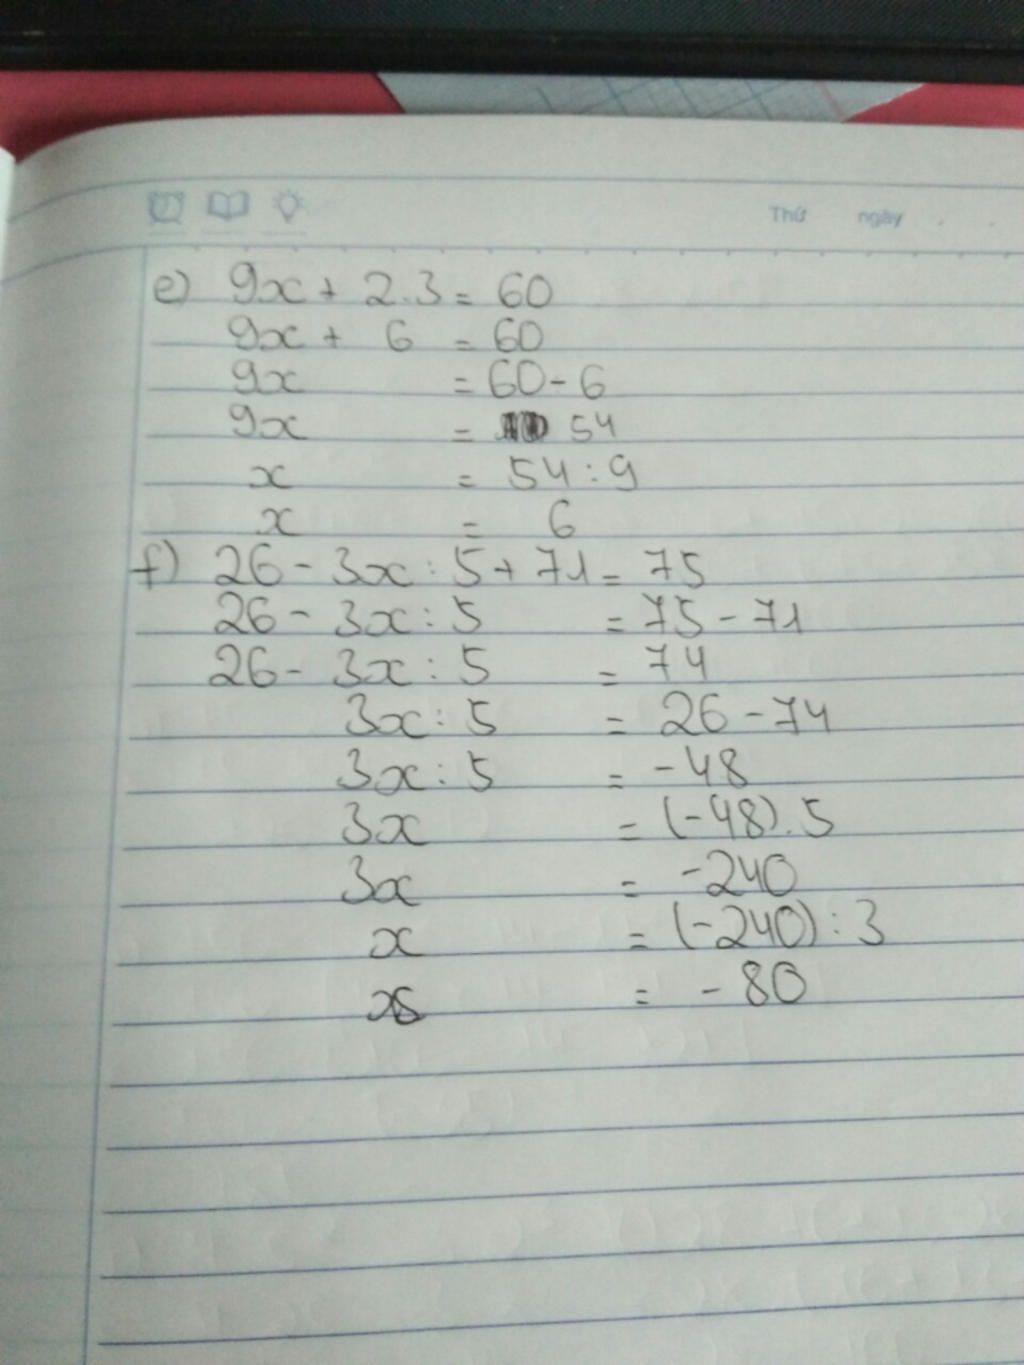 Thứ ngày
e) 9x + 2.3 = 60
9x + 6 = 60
9x = 60 - 6
9x = 54
x = 54 : 9
x = 6
f) 26 - 3x : 5 + 71 = 75
26 - 3x : 5 = 75 - 71
26 - 3x : 5 = 74
3x : 5 = 26 - 74
3x : 5 = -48
3x = (-48).5
3x = -240
x = (-240) : 3
x = - 80